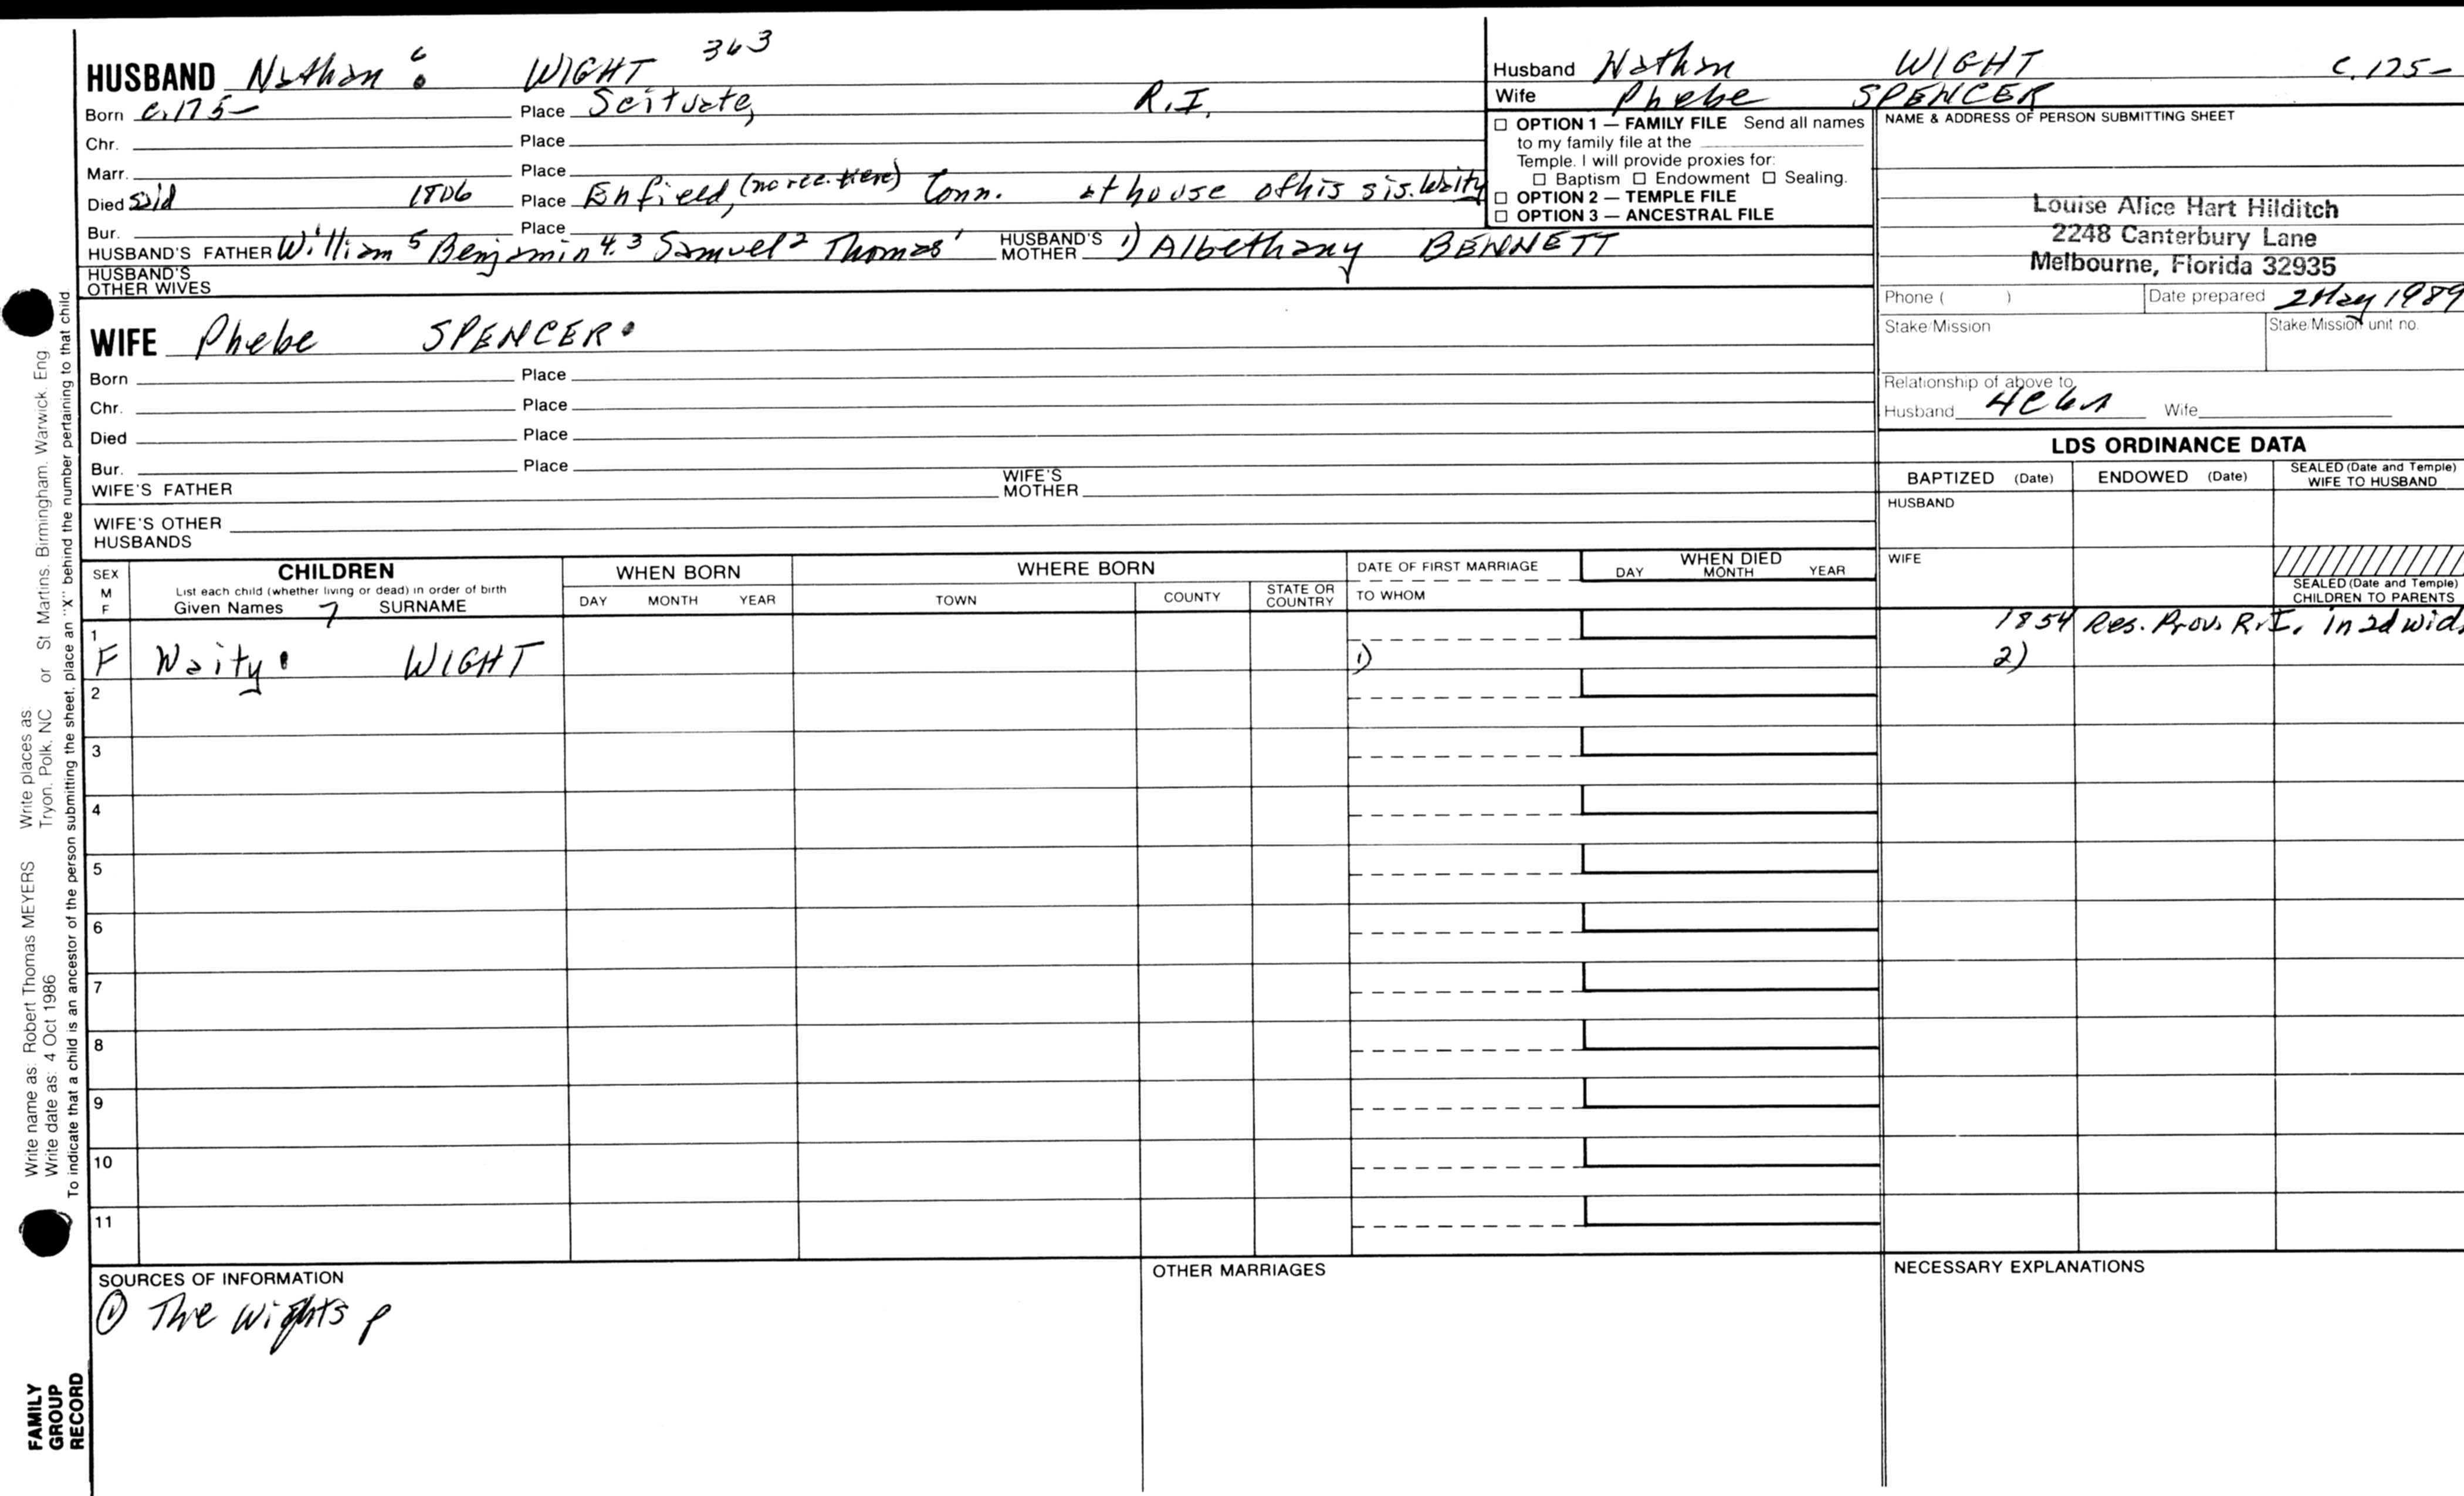 HUSBAND Nathan 6 WIGHT 363
Born c.175- Place Scituate, R.I.
Chr. Place
Marr. Place
Died said 1806 Place Enfield, (no rec. there) Conn. at house of his sis. Waity
Bur. Place
HUSBAND'S FATHER William 5 Benjamin 4.3 Samuel 2 Thomas 1 HUSBAND'S MOTHER 1) Albethany BENNETT
HUSBAND'S OTHER WIVES
WIFE Phebe SPENCER
Born Place
Chr. Place
Died Place
Bur. Place
WIFE'S FATHER WIFE'S MOTHER
WIFE'S OTHER HUSBANDS
Husband Nathan WIGHT c.175-
Wife Phebe SPENCER
☐ OPTION 1 — FAMILY FILE Send all names
to my family file at the
Temple. I will provide proxies for:
☐ Baptism ☐ Endowment ☐ Sealing.
☐ OPTION 2 — TEMPLE FILE
☐ OPTION 3 — ANCESTRAL FILE
NAME & ADDRESS OF PERSON SUBMITTING SHEET
Louise Alice Hart Hilditch
2248 Canterbury Lane
Melbourne, Florida 32935
Phone ( ) Date prepared 2 May 1989
Stake/Mission Stake/Mission unit no.
Relationship of above to
Husband Wife
LDS ORDINANCE DATA
BAPTIZED (Date) ENDOWED (Date) SEALED (Date and Temple) WIFE TO HUSBAND
HUSBAND
WIFE
SEALED (Date and Temple)
CHILDREN TO PARENTS
SEX M F
CHILDREN
List each child (whether living or dead) in order of birth
Given Names 7 SURNAME
WHEN BORN
DAY MONTH YEAR
WHERE BORN
TOWN COUNTY STATE OR COUNTRY
DATE OF FIRST MARRIAGE
TO WHOM
WHEN DIED
DAY MONTH YEAR
1 1854 Res. Prov. R.I. in 2d wid.
F Waity WIGHT 1) 2)
2
3
4
5
6
7
8
9
10
11
SOURCES OF INFORMATION
① The Wights p
OTHER MARRIAGES
NECESSARY EXPLANATIONS
Write name as: Robert Thomas MEYERS Write places as
Write date as: 4 Oct 1986 Tryon, Polk, NC or St Martins, Birmingham, Warwick, Eng
To indicate that a child is an ancestor of the person submitting the sheet, place an "X" behind the number pertaining to that child.
FAMILY
GROUP
RECORD